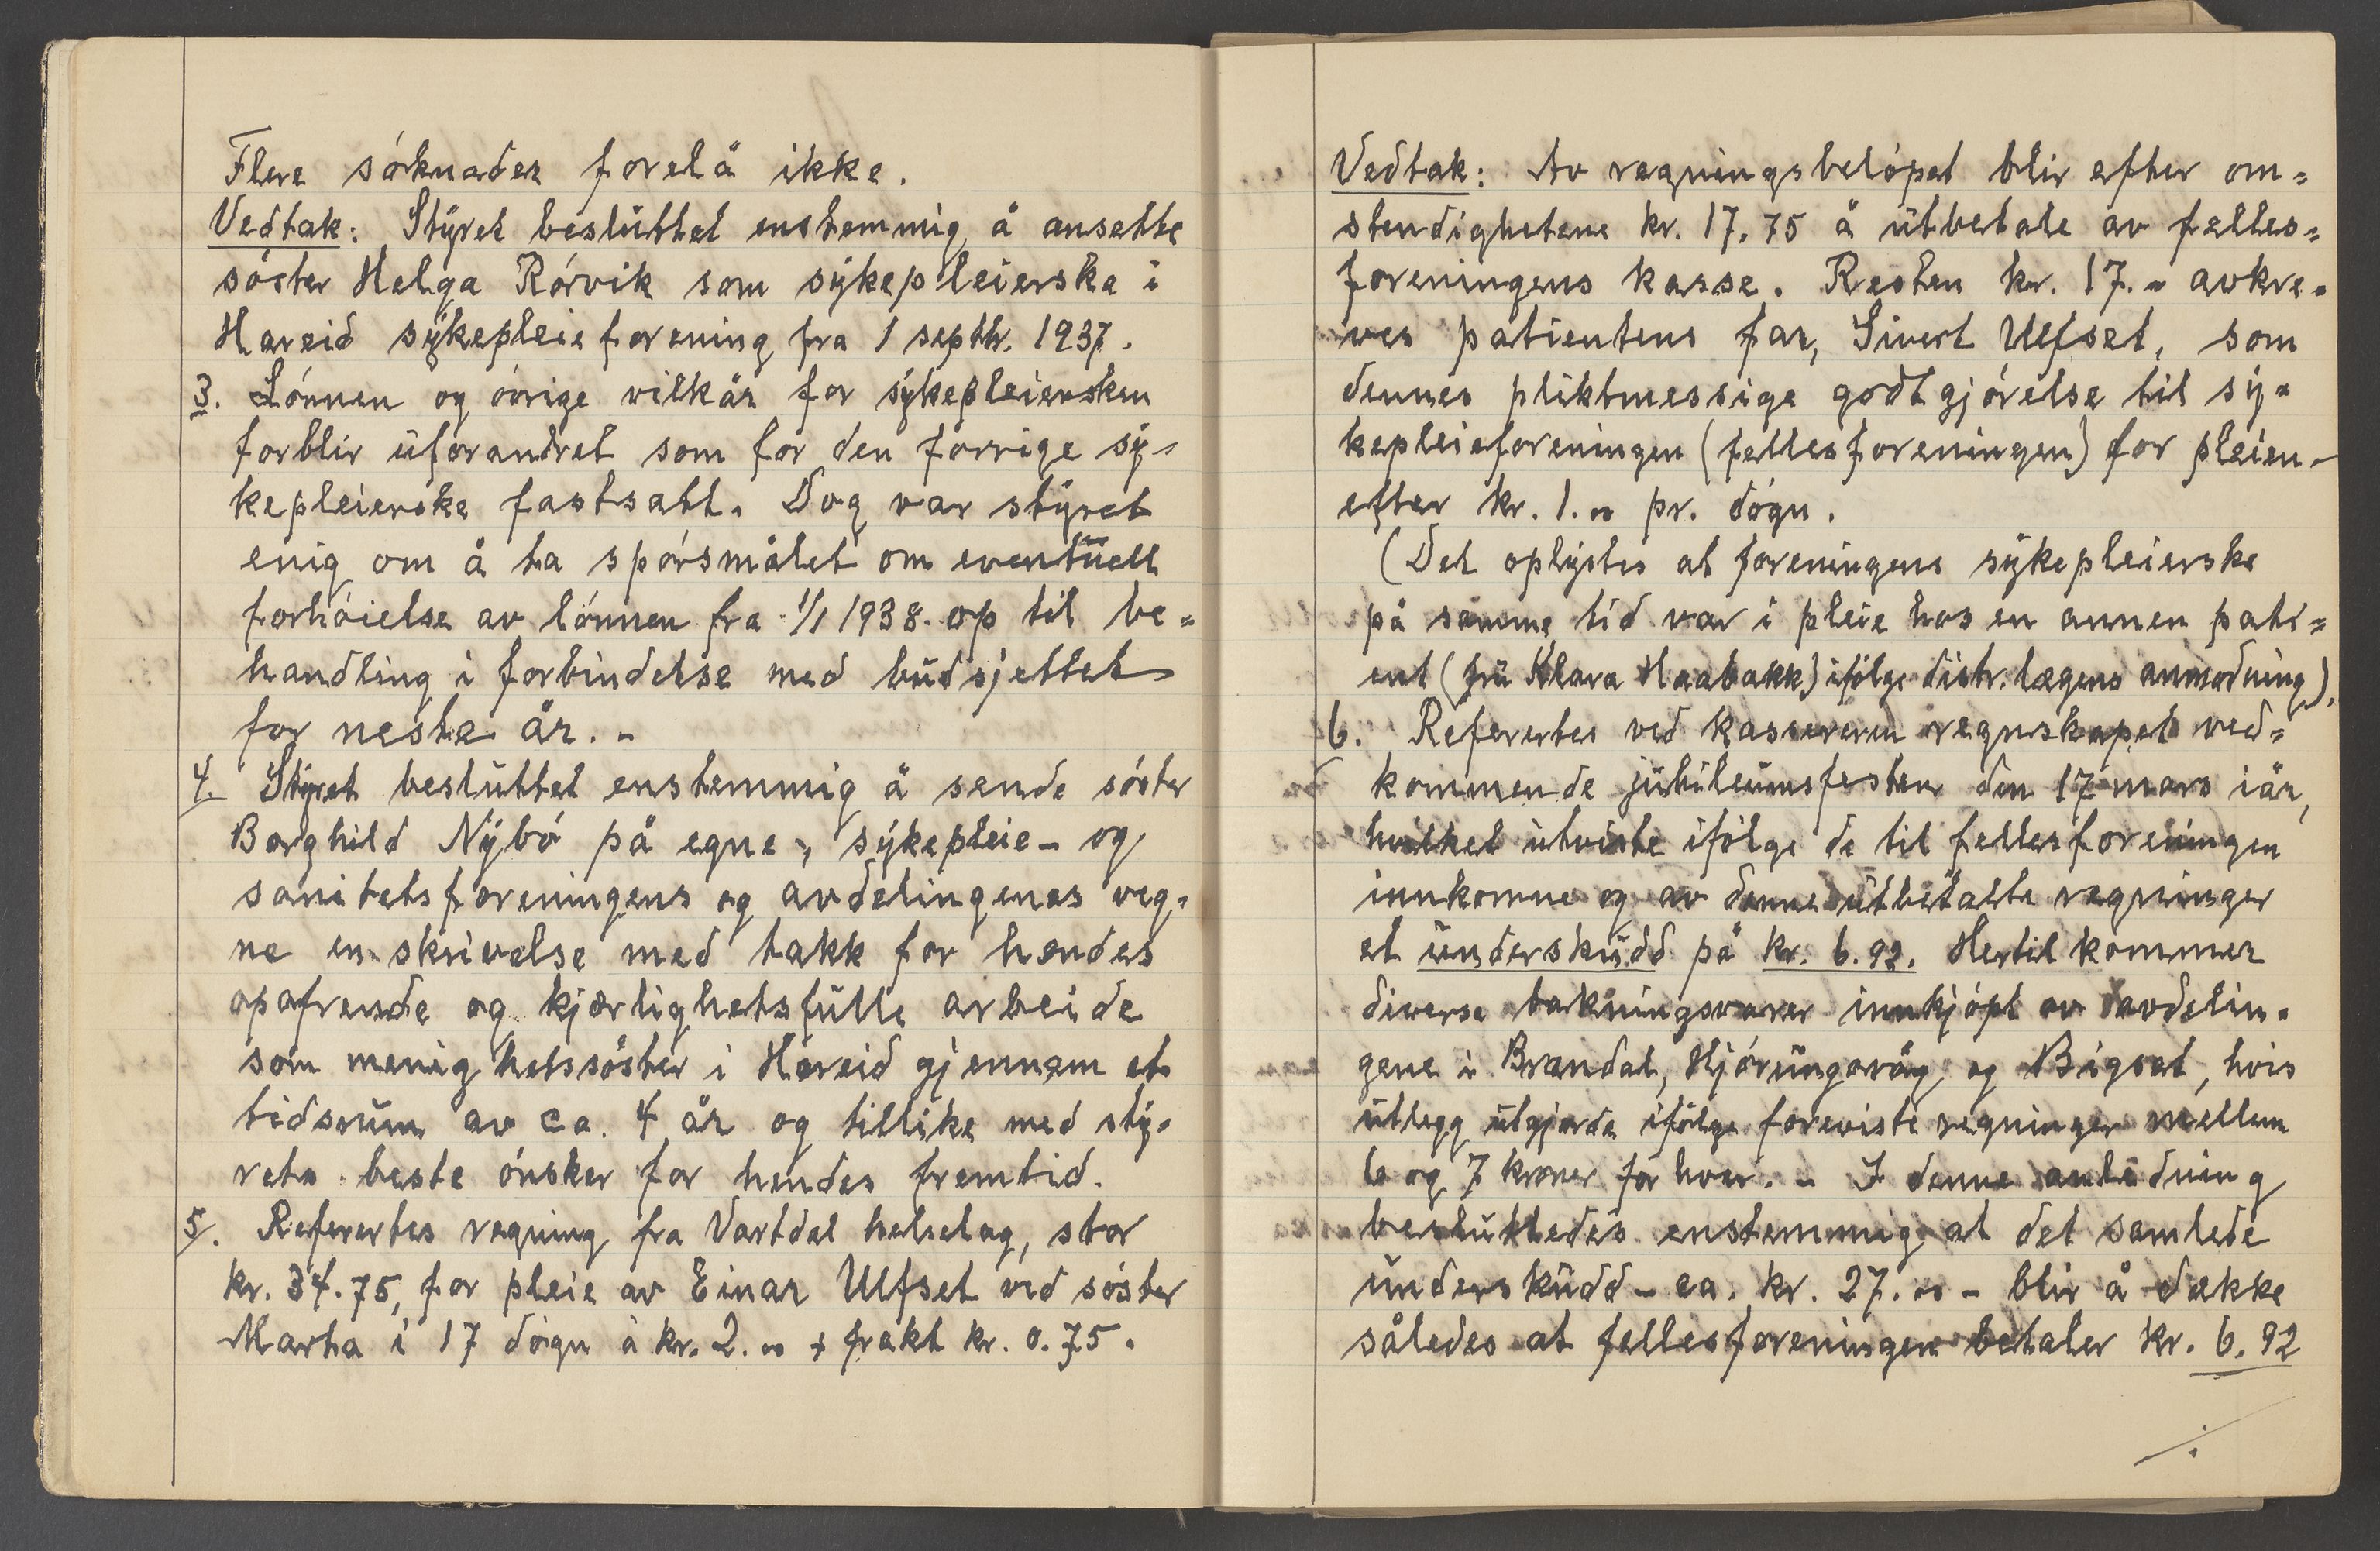 Flere søknader forelå ikke.
Vedtak: Styret besluttet enstemmig å ansette
søster Helga Rørvik som sykepleierske i
Hareid sykepleieforening fra 1 septbr. 1937.
3. Lønnen og øvrige vilkår for sykepleiersken
forblir uforandret som for den forrige sy-
kepleierske fastsatt. Dog var styret
enig om å ta spørsmålet om eventuell
forhøielse av lønnen fra 1/1 1938 op til be=
handling i forbindelse med budsjettet
for neste år. -
4. Styret besluttet enstemmig å sende søster
Borghild Nybø på egne, sykepleie- og
sanitetsforeningens og avdelingenes veg-
ne en skrivelse med takk for hendes
opofrende og kjærlighetsfulle arbeide
som menighetssøster i Hareid gjennem et
tidsrum av ca. 4 år og tillike med sty-
rets beste ønsker for hendes fremtid.
5. Refertes regning fra Vartdal helselag, stor
kr. 34.75, for pleie av Einar Ulfset ved søster
Marta i 17 døgn à kr. 2.00 + frakt kr. 0.75.
Vedtak: Av regningsbeløpet blir efter om=
stendighetene kr. 17.75 å utbetale av felles=
foreningens kasse. Resten kr. 17.- avkre-
ves patientens far, Sivert Ulfset, som
dennes pliktmessige godtgjørelse til sy-
kepleieforeningen (fellesforeningen) for pleien -
efter kr. 1.00 pr. døgn.
(Det oplystes at foreningens sykepleierske
på samme tid var i pleie hos en annen pati=
ent (fru Klara Haabakk) ifølge distr. lægens anmodning).
6. Refertes ved kassereren regnskapet ved=
kommende jubileumsfesten den 17 mars iår,
hvilket utviste ifølge de til fellesforeningen
innkomne og av denne utbetalte regninger
et underskudd på kr. 6.92. Hertil kommer
diverse bakningsvarer innkjøpt av avdelin-
gene i Brandal, Hjørungavåg og Bigset, hvis
utlegg utgjorde ifølge foreviste regninger mellem
6 og 7 kroner for hver. - I denne anledning
besluttedes enstemmig at det samlede
underskudd - ca. kr. 27.00 - blir å dekke
således at fellesforeningen betaler kr. 6.92
./.